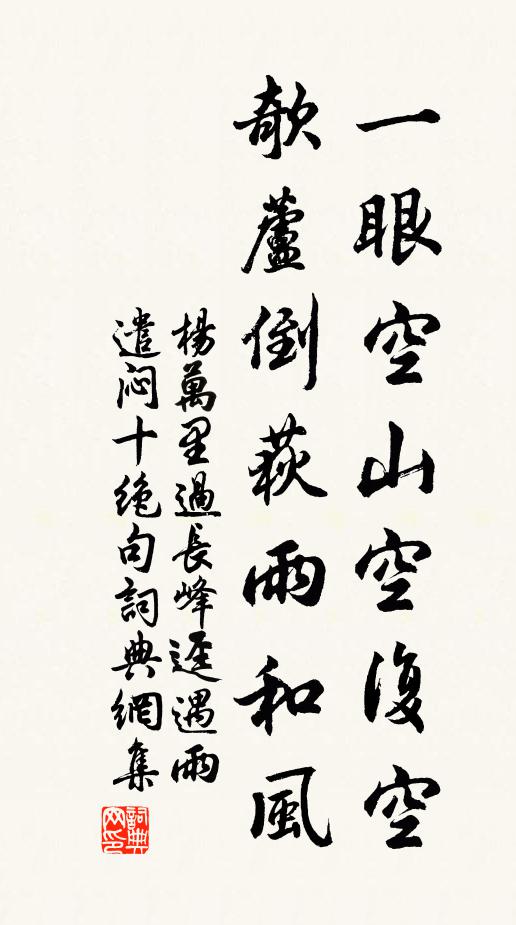 一眼空山空復空
欹蘆倒荻雨和風
楊萬里過長峰逕遇雨
遣悶十絶句詞典網集
詞典
网印